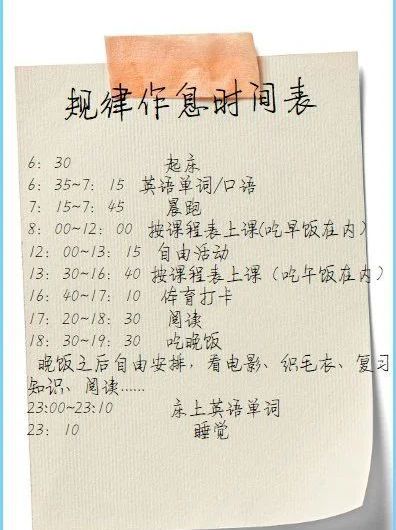 规律作息时间表
6：30 起床
6：35~7：15 英语单词/口语
7：15~7：45 晨跑
8：00~12：00 按课程表上课(吃早饭在内)
12：00~13：15 自由活动
13：30~16：40 按课程表上课（吃午饭在内）
16：40~17：10 体育打卡
17：20~18：30 阅读
18：30~19：30 吃晚饭
晚饭之后自由安排，看电影、织毛衣、复习
知识、阅读......
23:00~23:10 床上英语单词
23：10 睡觉